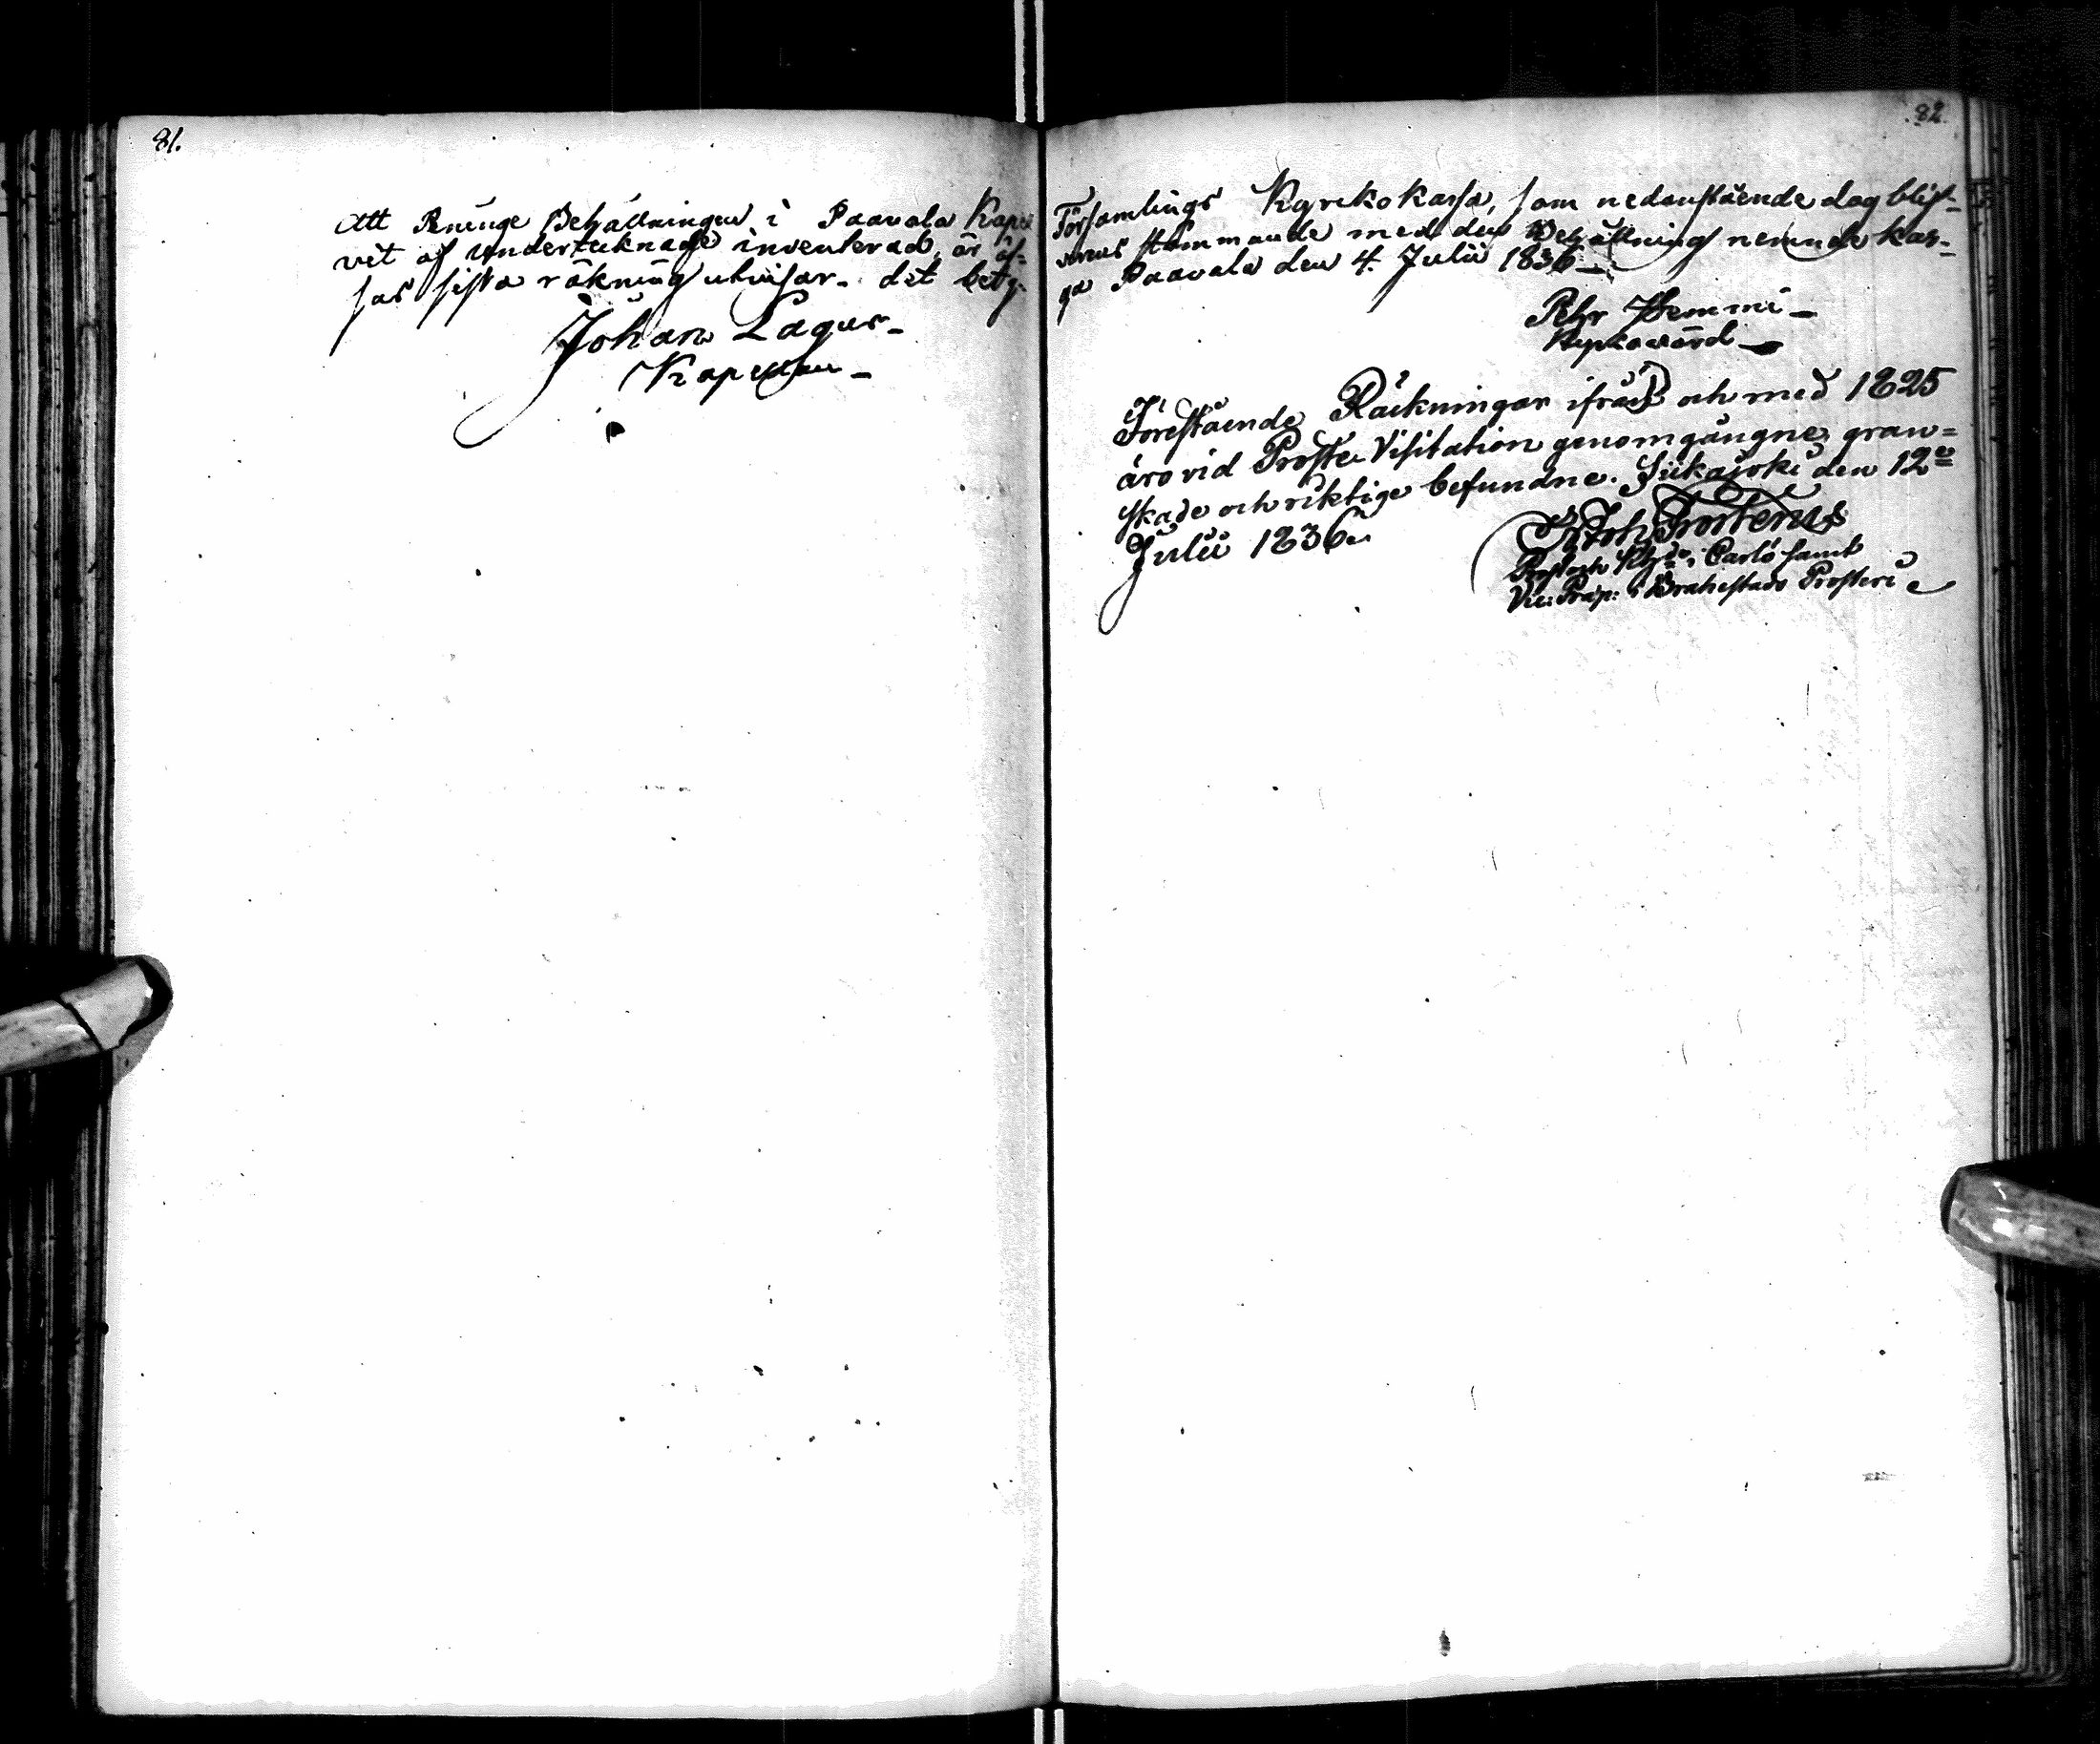 81.
Att Peninge Behållningen i Paavola Kapel
vit af undertecknade inventerad, är öf-
sas sista räkning utvisar. det bety-
Johan Lagus
Kapellan
82.
Församlings Kyrko kassa, som nedanstående dag blif-
verens stämmande med den Behållning nemnde kas-
ga Paavola den 4. Julii 1836
Pehr Hemmi
Kyrkovärd
Förestående Räkningar ifrån och med 1825
äro vid Prosts Visitation genomgångne, gran=
skade och riktige befundne. Siikajoki den 12
Julii 1836.
Joh Frosterus
Prost och Khde i Carlö samt
Vice Præp: i Brahestads Prosteri